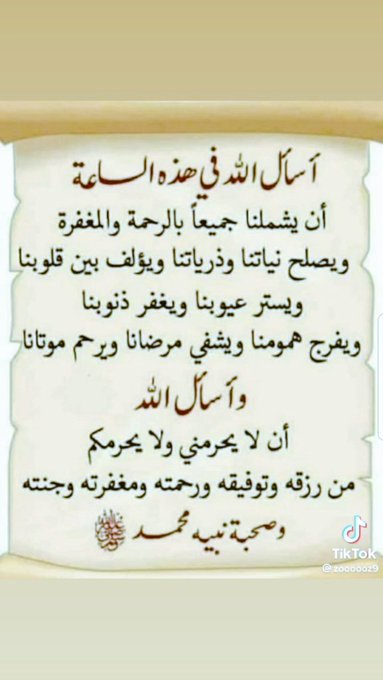 أسأل الله في هذه الساعة
أن يشملنا جميعاً بالرحمة والمغفرة
ويصلح نياتنا وذرياتنا ويؤلف بين قلوبنا
ويستر عيوبنا ويغفر ذنوبنا
ويفرج همومنا ويشفي مرضانا ويرحم موتانا
وأسأل الله
أن لا يحرمني ولا يحرمكم
من رزقه وتوفيقه ورحمته ومغفرته وجنته
وصحبة نبيه محمد ﷺ
TikTok
@zoooooz9